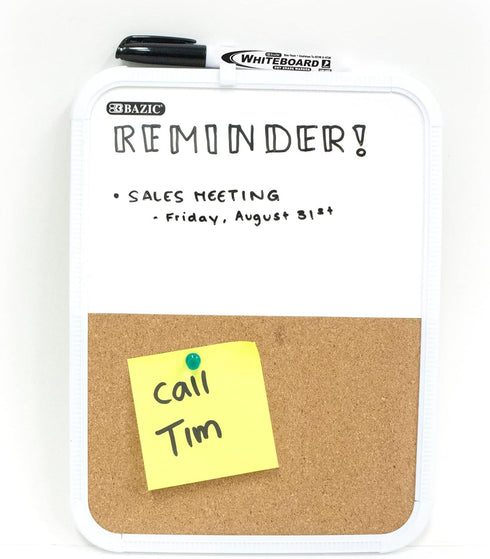 WHITEBOARD
DRY ERASE MARKER
BAZIC
REMINDER!
• SALES MEETING
- Friday, August 31st
Call
Tim